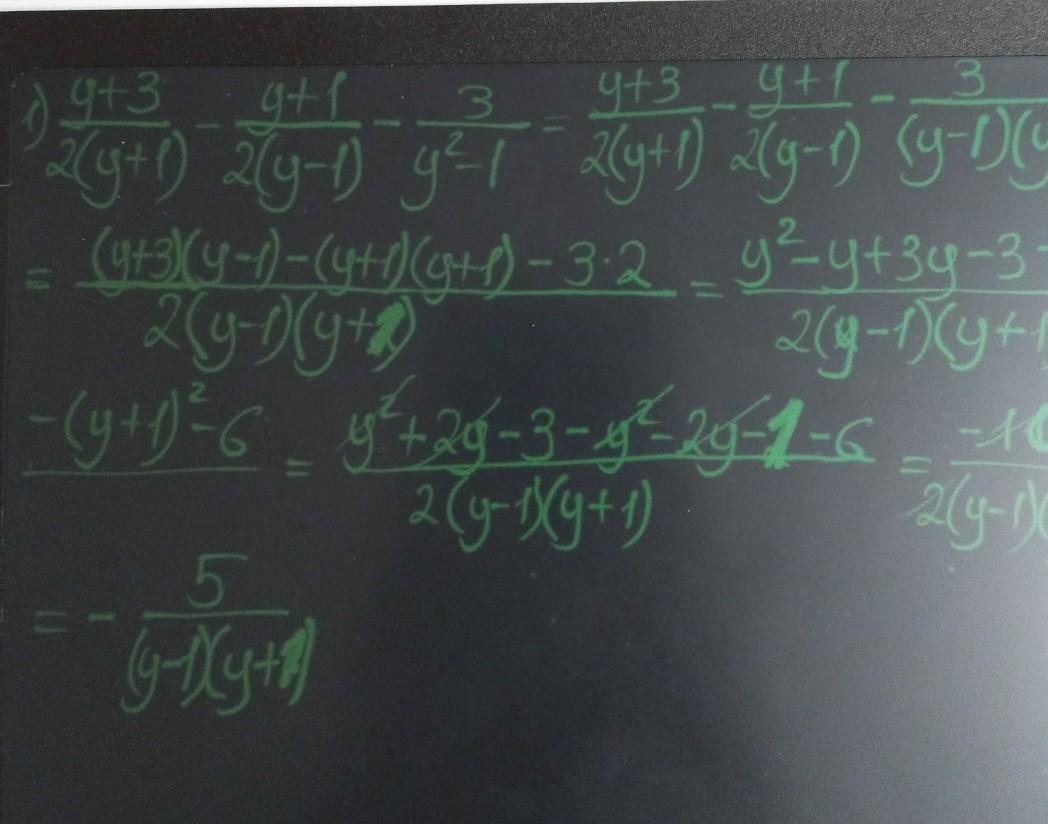 1) (y+3)/(2(y+1)) - (y+1)/(2(y-1)) - 3/(y²-1) = (y+3)/(2(y+1)) - (y+1)/(2(y-1)) - 3/((y-1)(y
= ((y+3)(y-1)-(y+1)(y+1)-3·2)/(2(y-1)(y+1)) = (y²-y+3y-3-)/(2(y-1)(y+1
-(y+1)²-6 = (y²+2y-3-y²-2y-1-6)/(2(y-1)(y+1)) = (-10)/(2(y-1)(
= - 5/((y-1)(y+1))